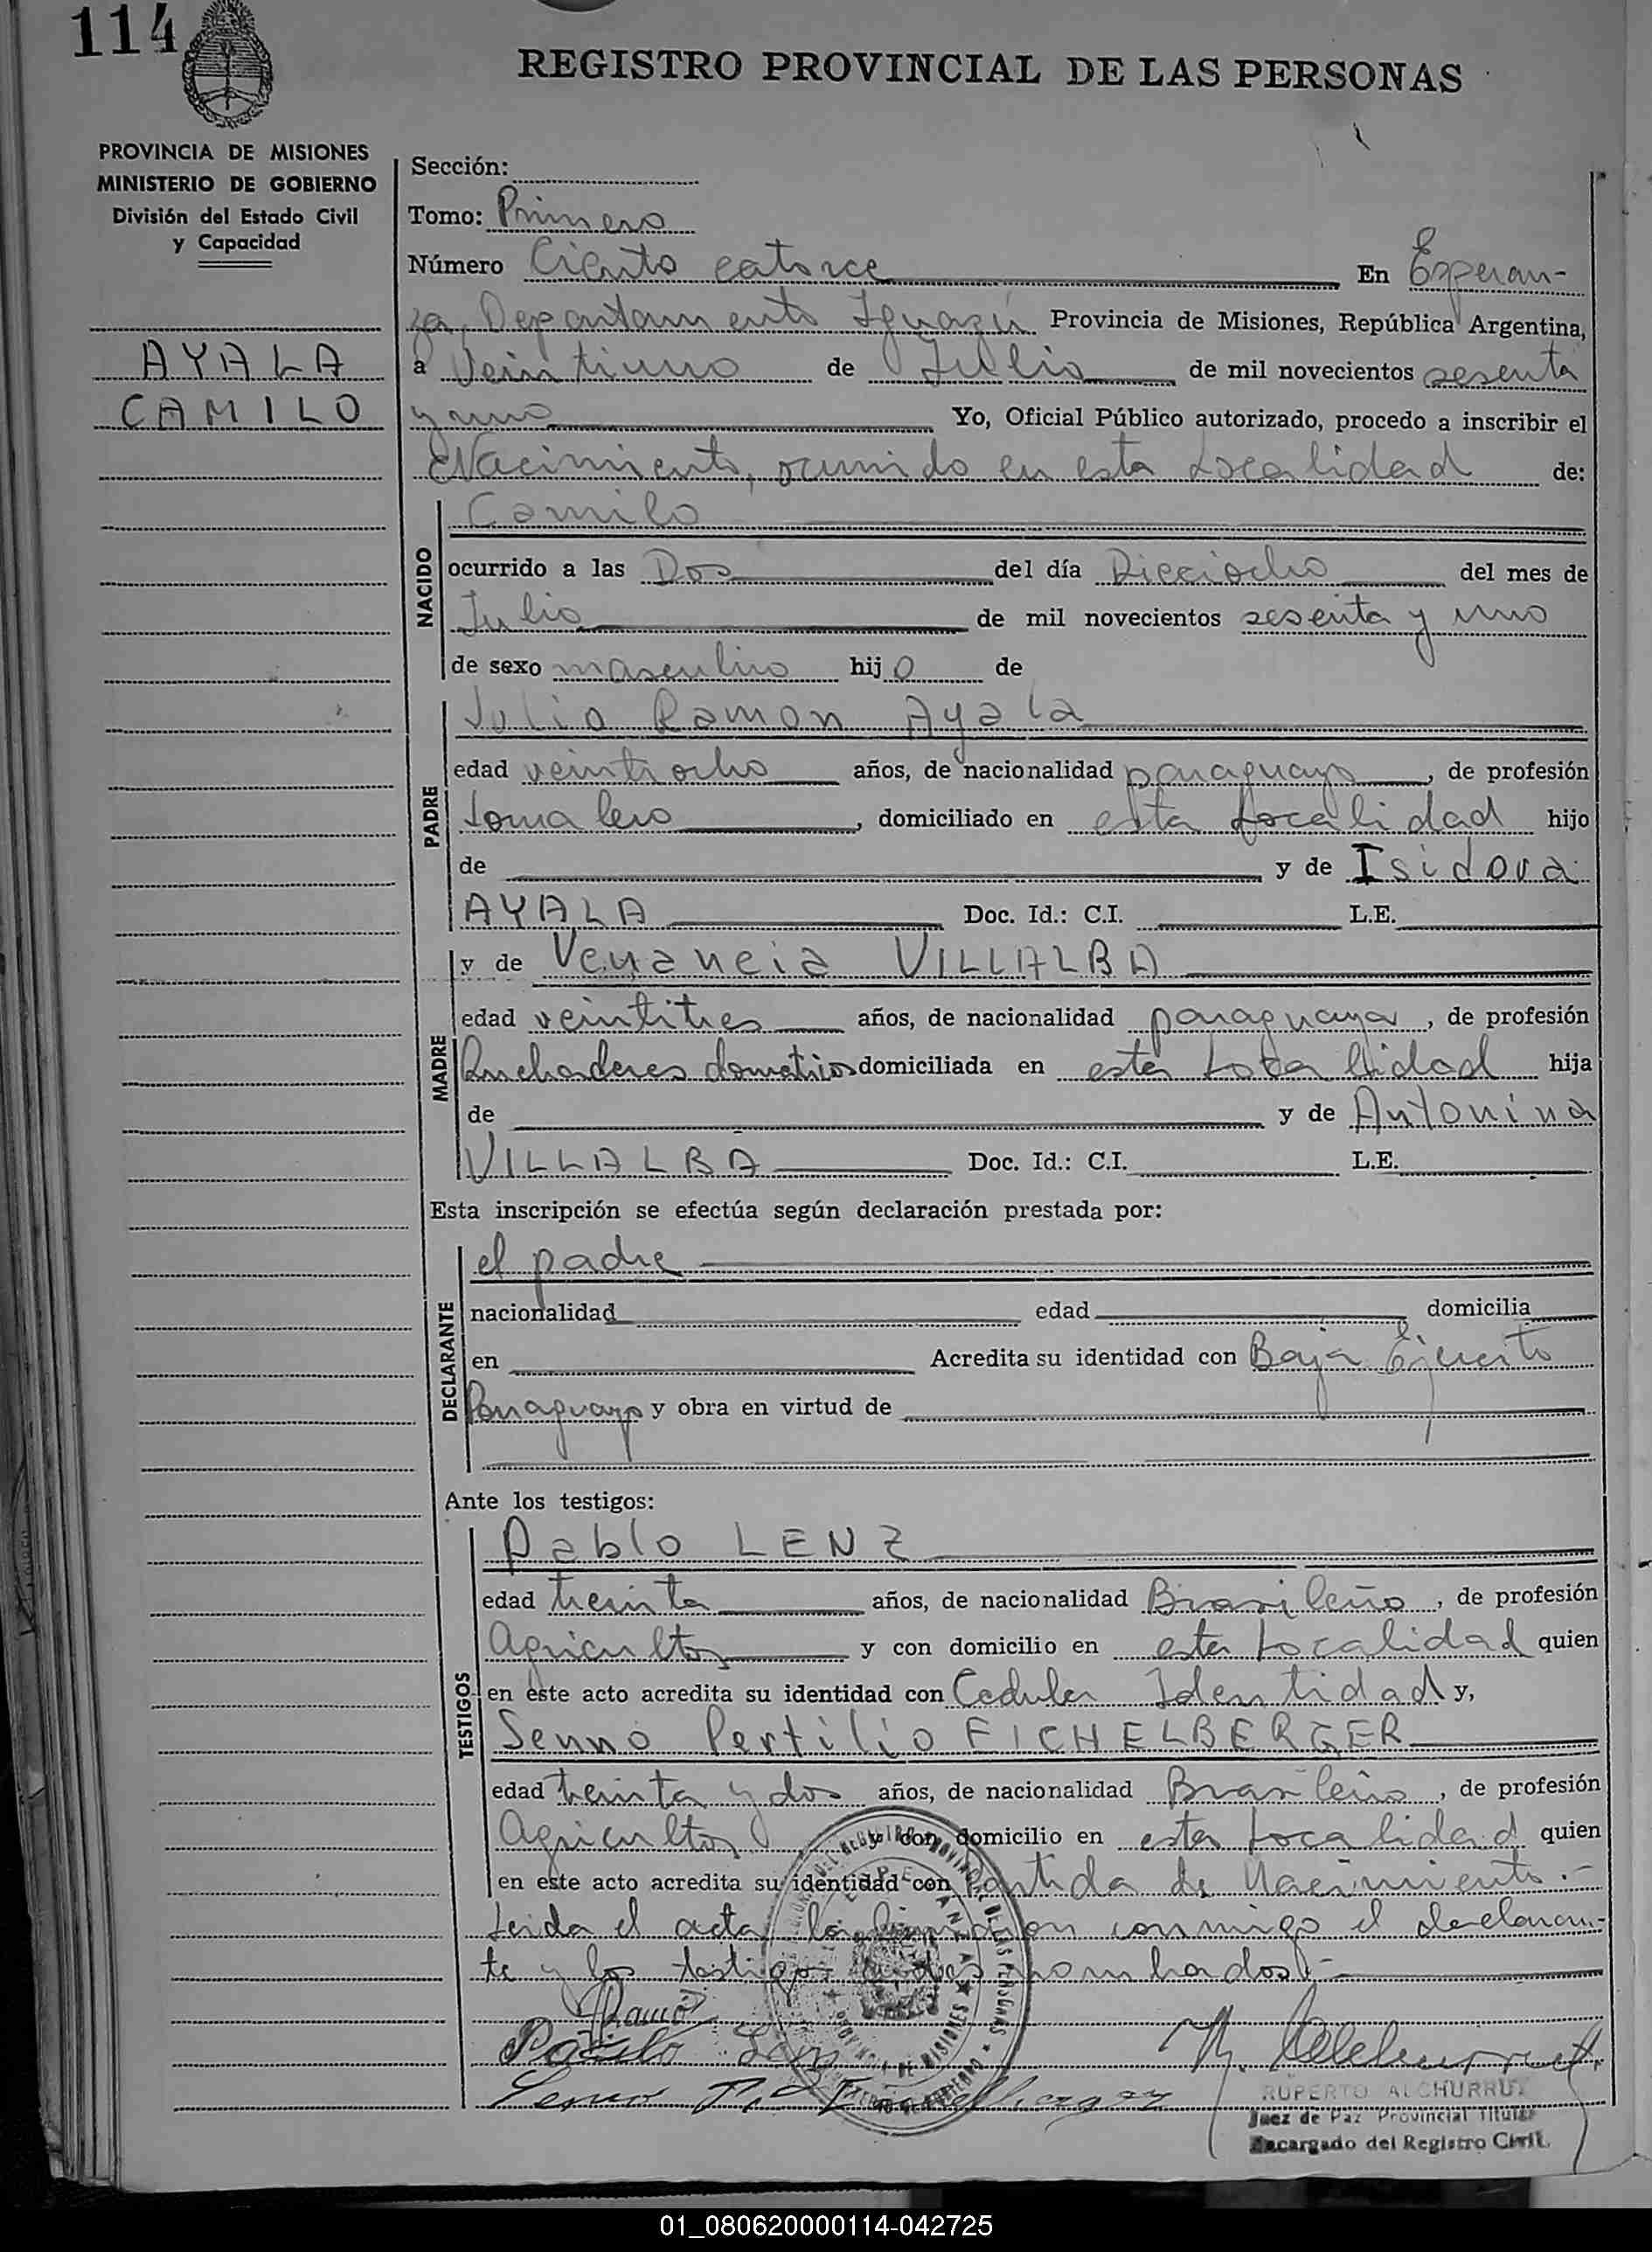 114
REGISTRO PROVINCIAL DE LAS PERSONAS
PROVINCIA DE MISIONES
MINISTERIO DE GOBIERNO
División del Estado Civil
y Capacidad
AYALA
CAMILO
Sección:
Tomo: Primero
Número Ciento catorce En Esperan-
za, Departamento Iguazú Provincia de Misiones, República Argentina,
a Veintiuno de Julio de mil novecientos sesenta
y uno Yo, Oficial Público autorizado, procedo a inscribir el
Nacimiento, ocurrido en esta Localidad de:
NACIDO
Camilo
ocurrido a las Dos del día Dieciocho del mes de
Julio de mil novecientos sesenta y uno
de sexo masculino hijo de
PADRE
Julio Ramon Ayala
edad veintiocho años, de nacionalidad paraguayo, de profesión
Jornalero, domiciliado en esta Localidad hijo
de y de Isidora
AYALA Doc. Id.: C.I. L.E.
MADRE
y de Venancia VILLALBA
edad veintitres años, de nacionalidad paraguaya, de profesión
Quehaceres domiciliada en esta Localidad hija
de y de Antonina
VILLALBA Doc. Id.: C.I. L.E.
Esta inscripción se efectúa según declaración prestada por:
DECLARANTE
el padre
nacionalidad edad domicilia
en Acredita su identidad con Baja Ejercito
Paraguayo y obra en virtud de
Ante los testigos:
TESTIGOS
Pablo LENZ
edad treinta años, de nacionalidad Brasileño, de profesión
Agricultor y con domicilio en esta Localidad quien
en este acto acredita su identidad con Cedula Identidad y,
Senno Pertilio EICHELBERGER
edad treinta y dos años, de nacionalidad Brasileño, de profesión
Agricultor y con domicilio en esta Localidad quien
en este acto acredita su identidad con Partida de Nacimiento.-
Leida el acta, la firman conmigo el declaran-
te y los testigos nombrados.-
Ramón
RUPERTO ALCHURRUT
Juez de Paz Provincial Titular
Encargado del Registro Civil
01_080620000114-042725